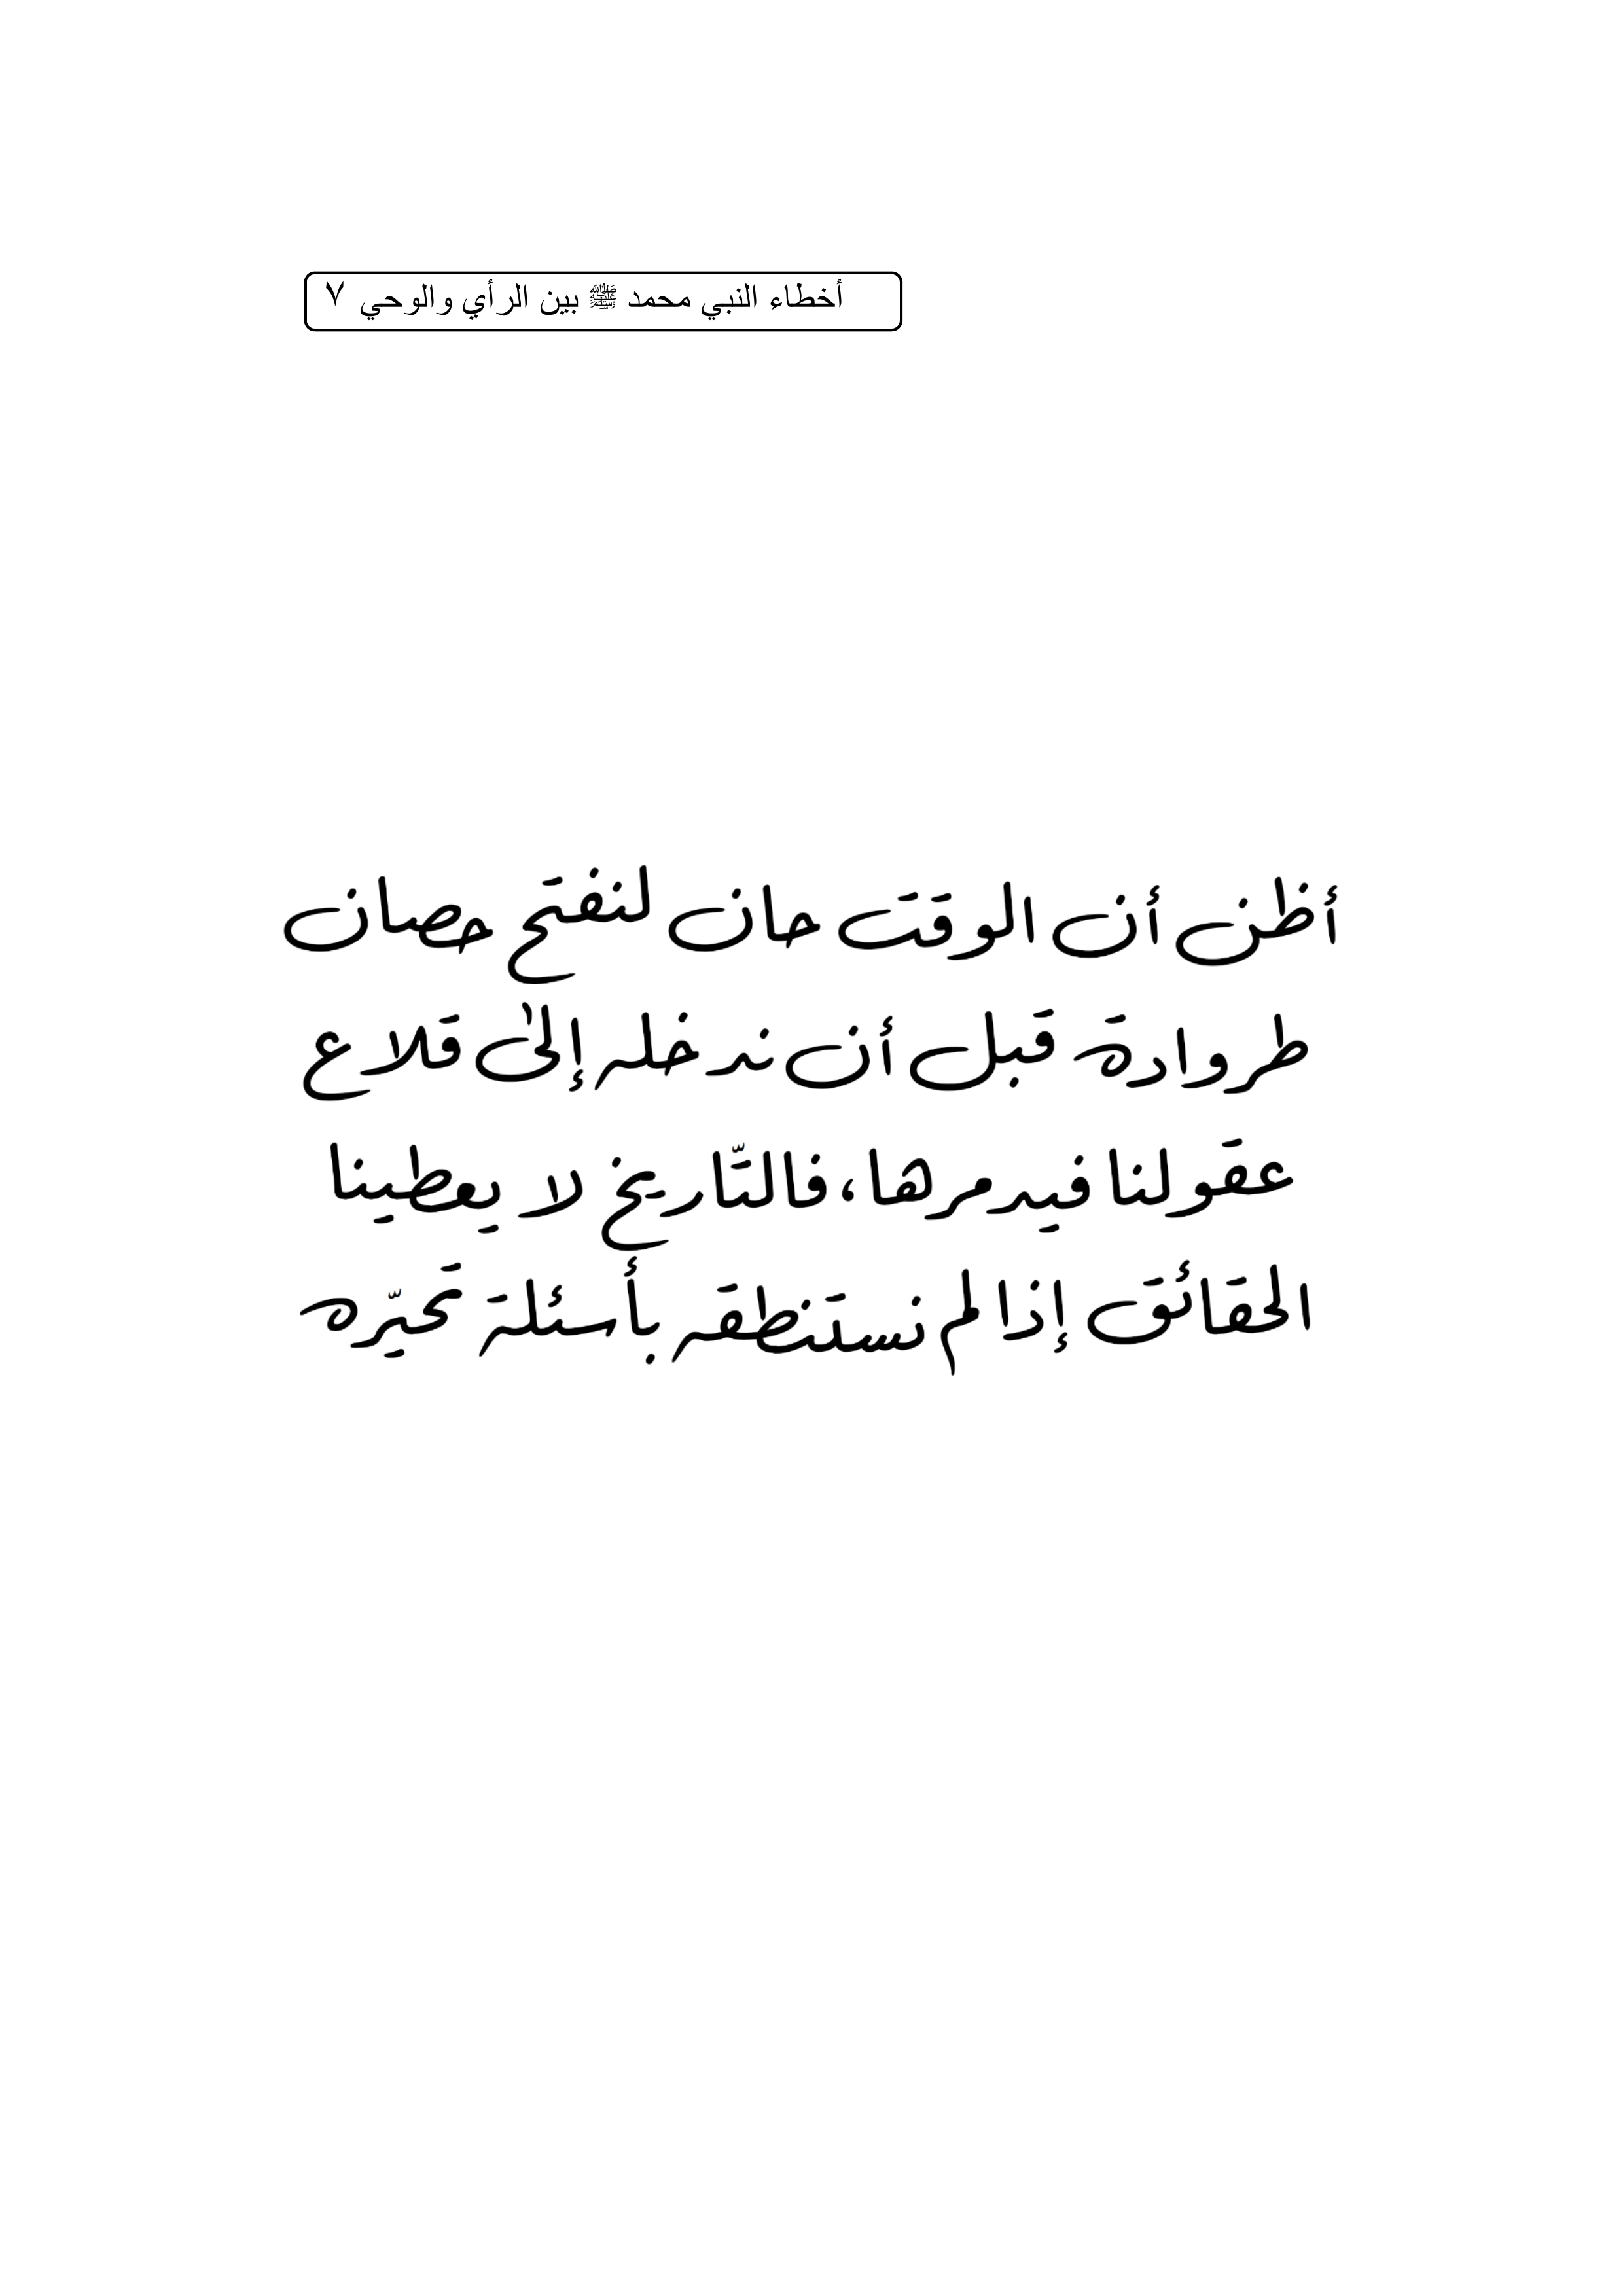 أخطاء النبي محمد ﷺ بين الرأي والوحي ٧
أظن أن الوقت حان لنفتح حصان
طروادة قبل أن ندخل إلى قلاع
عقولنا فيدمرها، فالتّاريخ لا يعطينا
الحقائق إذا لم نستنطقه بأسئلة تحيّره